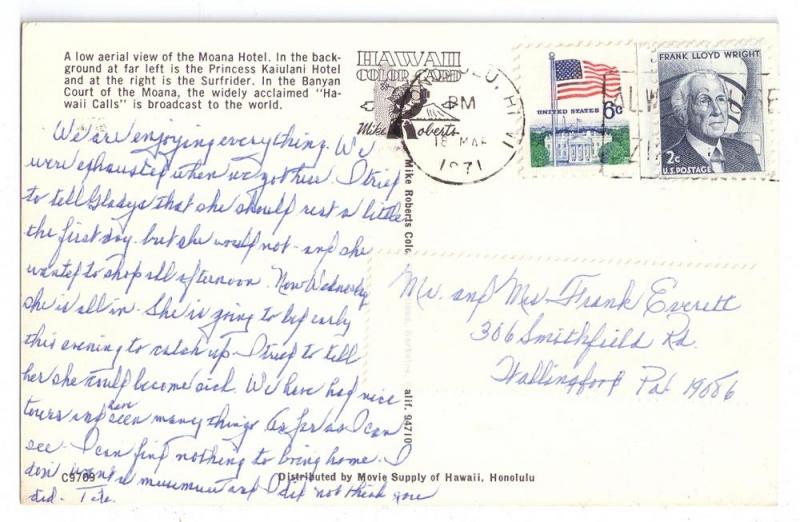 A low aerial view of the Moana Hotel. In the back-
ground at far left is the Princess Kaiulani Hotel
and at the right is the Surfrider. In the Banyan
Court of the Moana, the widely acclaimed "Ha-
waii Calls" is broadcast to the world.
HAWAII
COLOR CARD
Mike Roberts
HI
PM
18 MAR
1971
UNITED STATES
6c
FRANK LLOYD WRIGHT
2c
U.S. POSTAGE
We are enjoying everything. We
were exhausted when we got here. I tried
to tell Gladys that she should rest a little
the first day. but she would not - and she
wanted to shop all afternoon. Now Wednesday
she is all in. She is going to bed early
this evening to catch up. I tried to tell
her she could become sick. We have had nice
tours and have seen many things as far as I can
see. I can find nothing to bring home. I
don't want a and I did not think you
did.
Mike Roberts Colo
alif. 94710
Mr. and Mrs. Frank Everett
306 Smithfield Rd.
Wallingford Pa. 19086
C9709
Distributed by Movie Supply of Hawaii, Honolulu